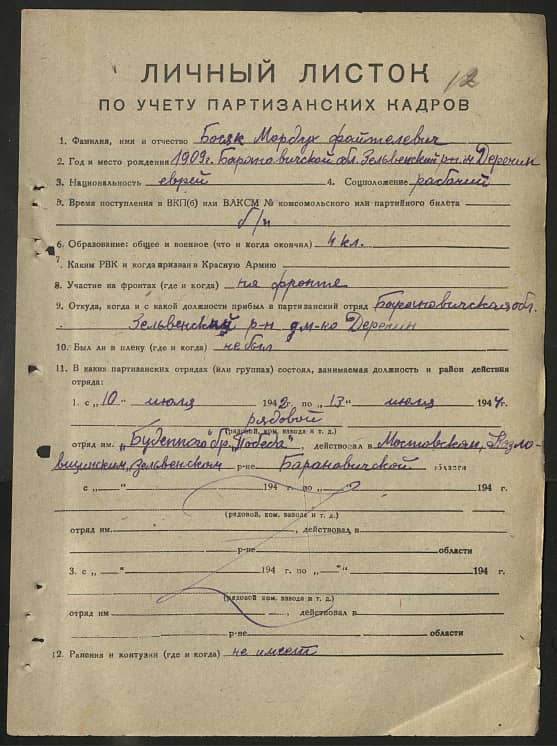 12
ЛИЧНЫЙ ЛИСТОК
ПО УЧЕТУ ПАРТИЗАНСКИХ КАДРОВ
1. Фамилия, имя и отчество Босяк Мордух Файтелевич
2. Год и место рождения 1909 г. Барановичской обл. Зельвенский р-н м Деречин
3. Национальность еврей 4. Соцположение рабочий
5. Время поступления в ВКП(б) или ВЛКСМ № комсомольского или партийного билета
б/п
6. Образование: общее и военное (что и когда окончил) 4 кл.
7. Каким РВК и когда призван в Красную Армию
8. Участие на фронтах (где и когда) на фронте
9. Откуда, когда и с какой должности прибыл в партизанский отряд Барановичская обл.
Зельвенский р-н Деречин
10. Был ли в плену (где и когда) не был
11. В каких партизанских отрядах (или группах) состоял, занимаемая должность и район действия
отряда:
1. с „10" июля 1942 г. по „13" июля 1944 г.
рядовой
(рядовой, ком. взвода и т. д.)
отряд им. „Буденного" бр. „Победа" действовал в Мостовском, Козлов-
щинским, Зельвенским р-не Барановичской области
с „ " 194 г. по „ " 194 г.
(рядовой, ком. взвода и т. д.)
отряд им. , действовал в
р-не области
3. с „ " 194 г. по „ " 194 г.
(рядовой ком. взвода и т. д.)
отряд им , действовал в
р-не области
12. Ранения и контузии (где и когда) не имеет